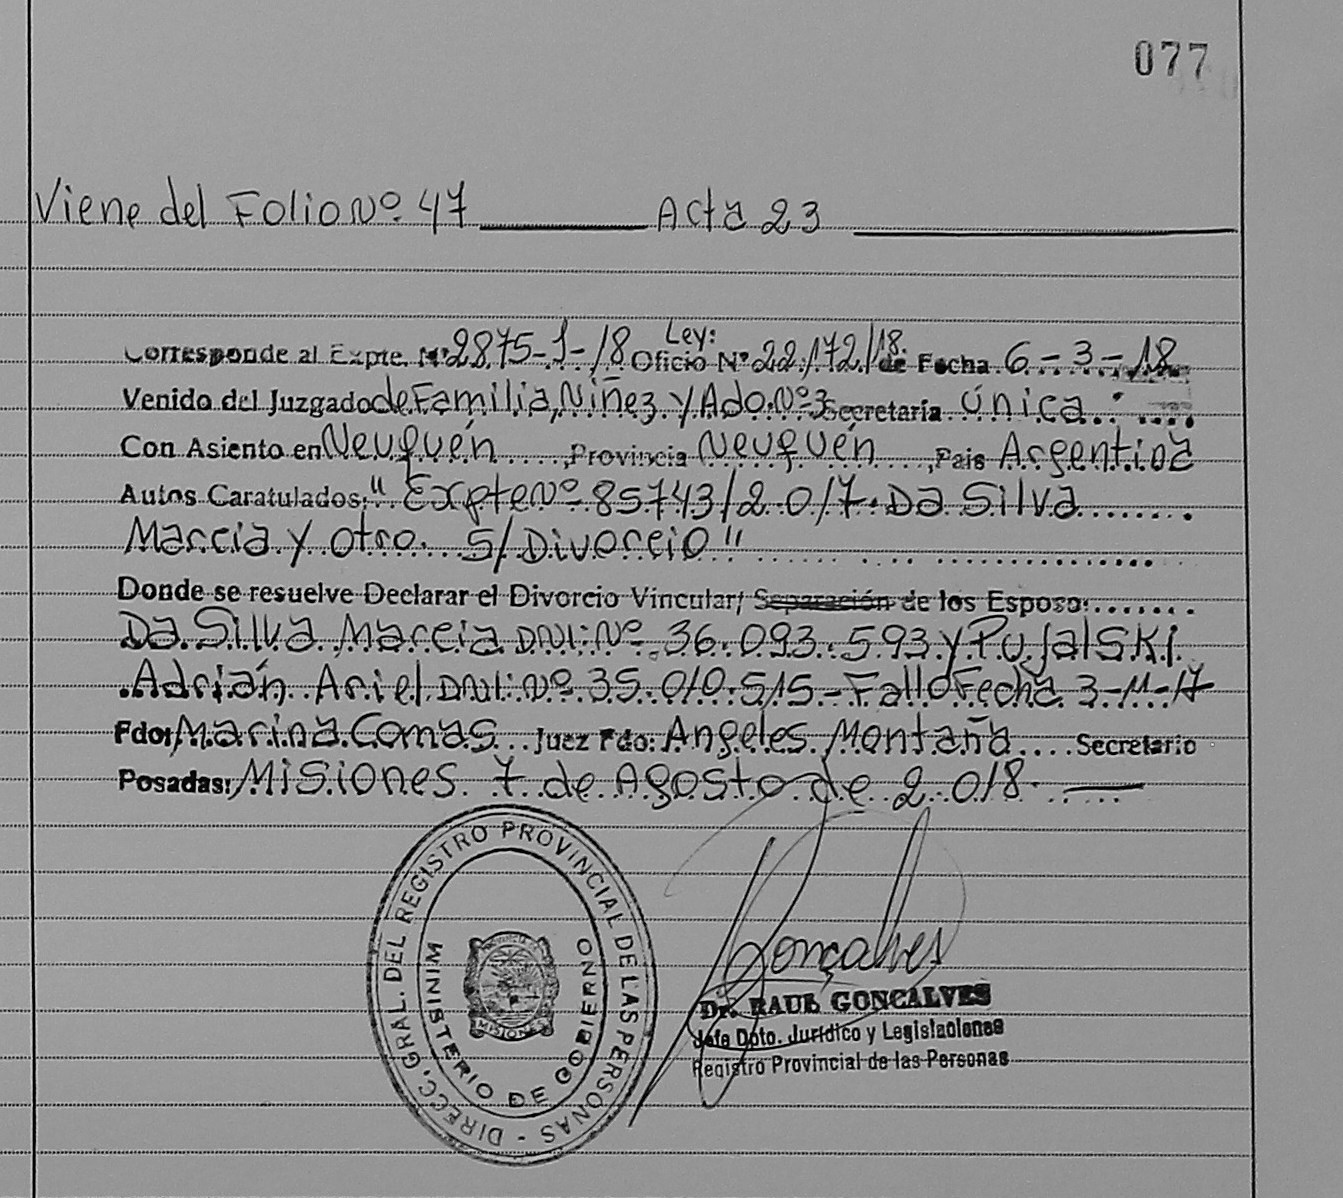 077
Viene del Folio Nº 47 Acta 23
Corresponde al Expte. Nº 2875-1-18 Ley: Oficio Nº 22.172/18. de Fecha 6-3-18
Venido del Juzgado de Familia, Niñez y Ado. Nº 3 Secretaria Única.
Con Asiento en Neuquén, Provincia Neuquén, Pais Argentina
Autos Caratulados: "Expte Nº 85743/2017. Da Silva
Marcia y otro. S/Divorcio"
Donde se resuelve Declarar el Divorcio Vincular/ Separación de los Esposo:
Da Silva Marcia DNI: Nº 36.093.593 y Pujalski
Adrián Ariel DNI: Nº 35.010.515 - Fallo Fecha 3-11-17
Fdo: Marina Comas Juez Fdo: Angeles Montaña Secretario
Posadas: Misiones 7 de Agosto de 2.018
DIRECC. GRAL. DEL REGISTRO PROVINCIAL DE LAS PERSONAS -
MINISTERIO DE GOBIERNO
MISIONES
Gonçalves
Dr. RAUL GONCALVES
Jefe Dpto. Jurídico y Legislaciones
Registro Provincial de las Personas